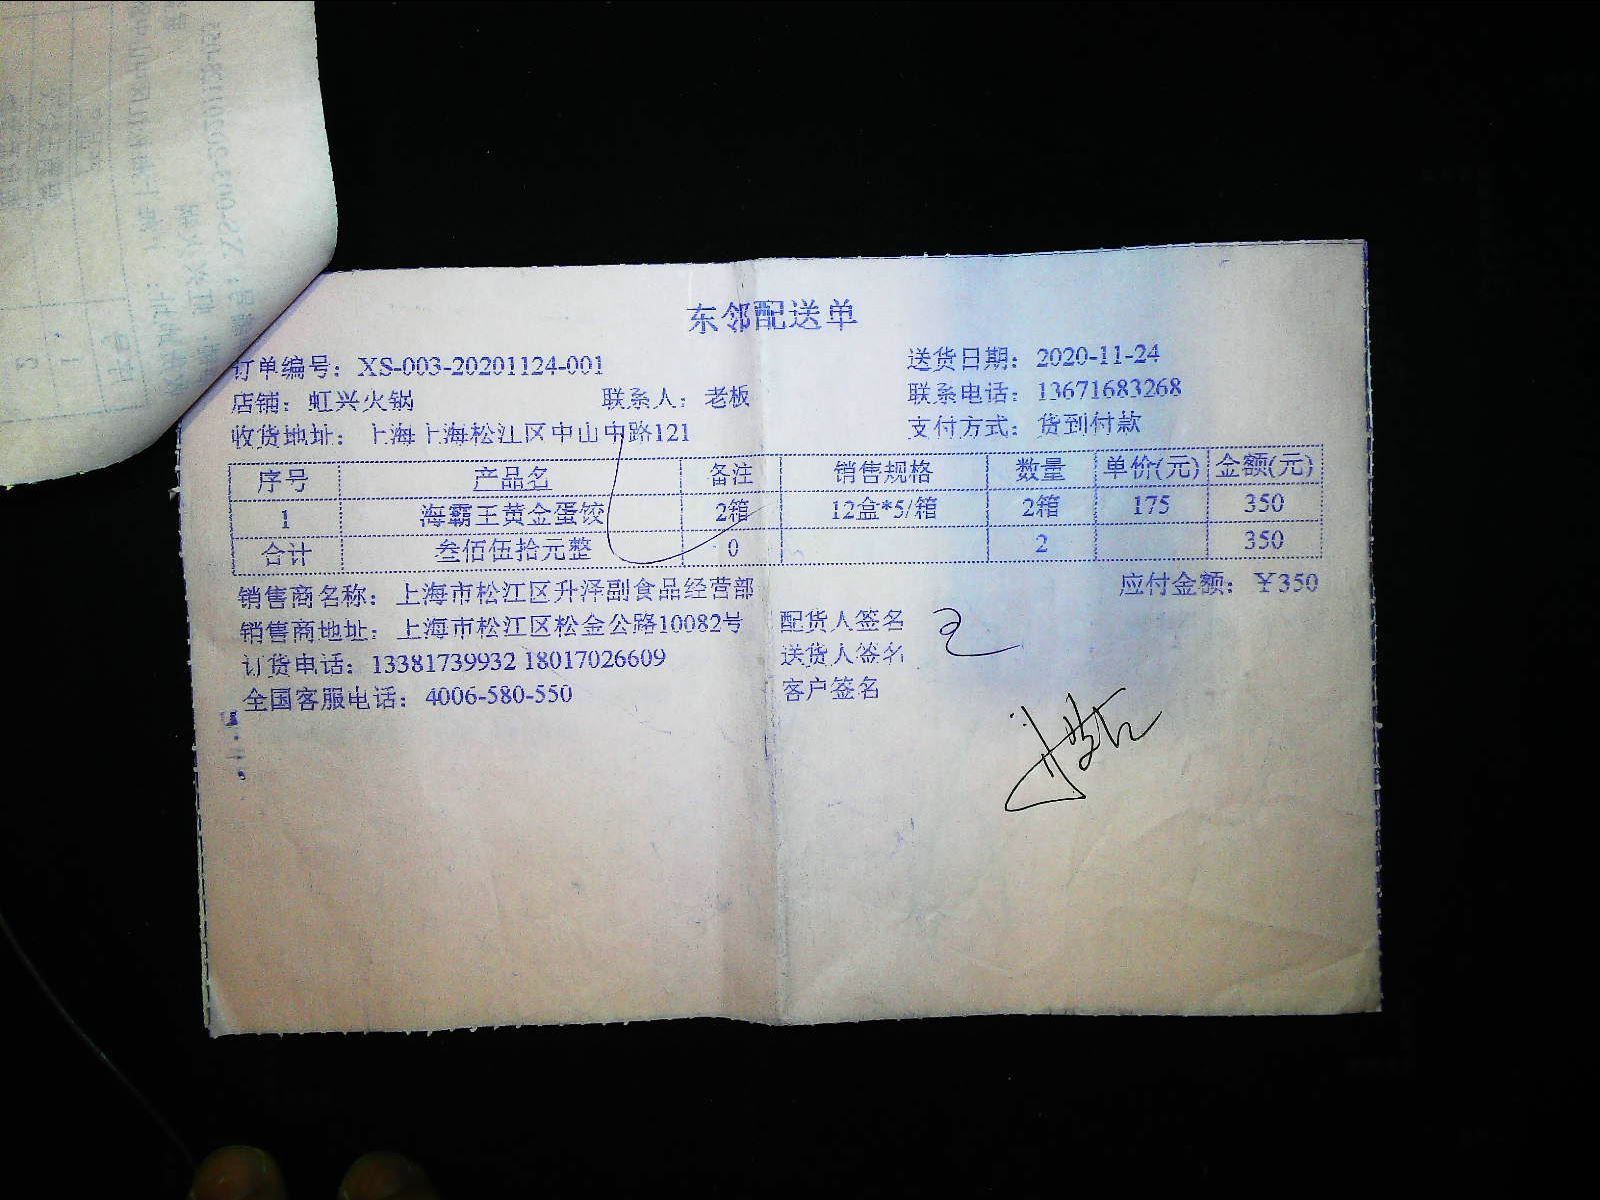 东邻配送单
订单编号：XS-003-20201124-001 送货日期：2020-11-24
店铺：虹兴火锅 联系人：老板 联系电话：13671683268
收货地址：上海上海松江区中山中路121 支付方式：货到付款
序号 产品名 备注 销售规格 数量 单价(元) 金额(元)
1 海霸王黄金蛋饺 2箱 12盒*5/箱 2箱 175 350
合计 叁佰伍拾元整 0 2 350
销售商名称：上海市松江区升泽副食品经营部 应付金额：￥350
销售商地址：上海市松江区松金公路10082号 配货人签名
订货电话：13381739932 18017026609 送货人签名
全国客服电话：4006-580-550 客户签名